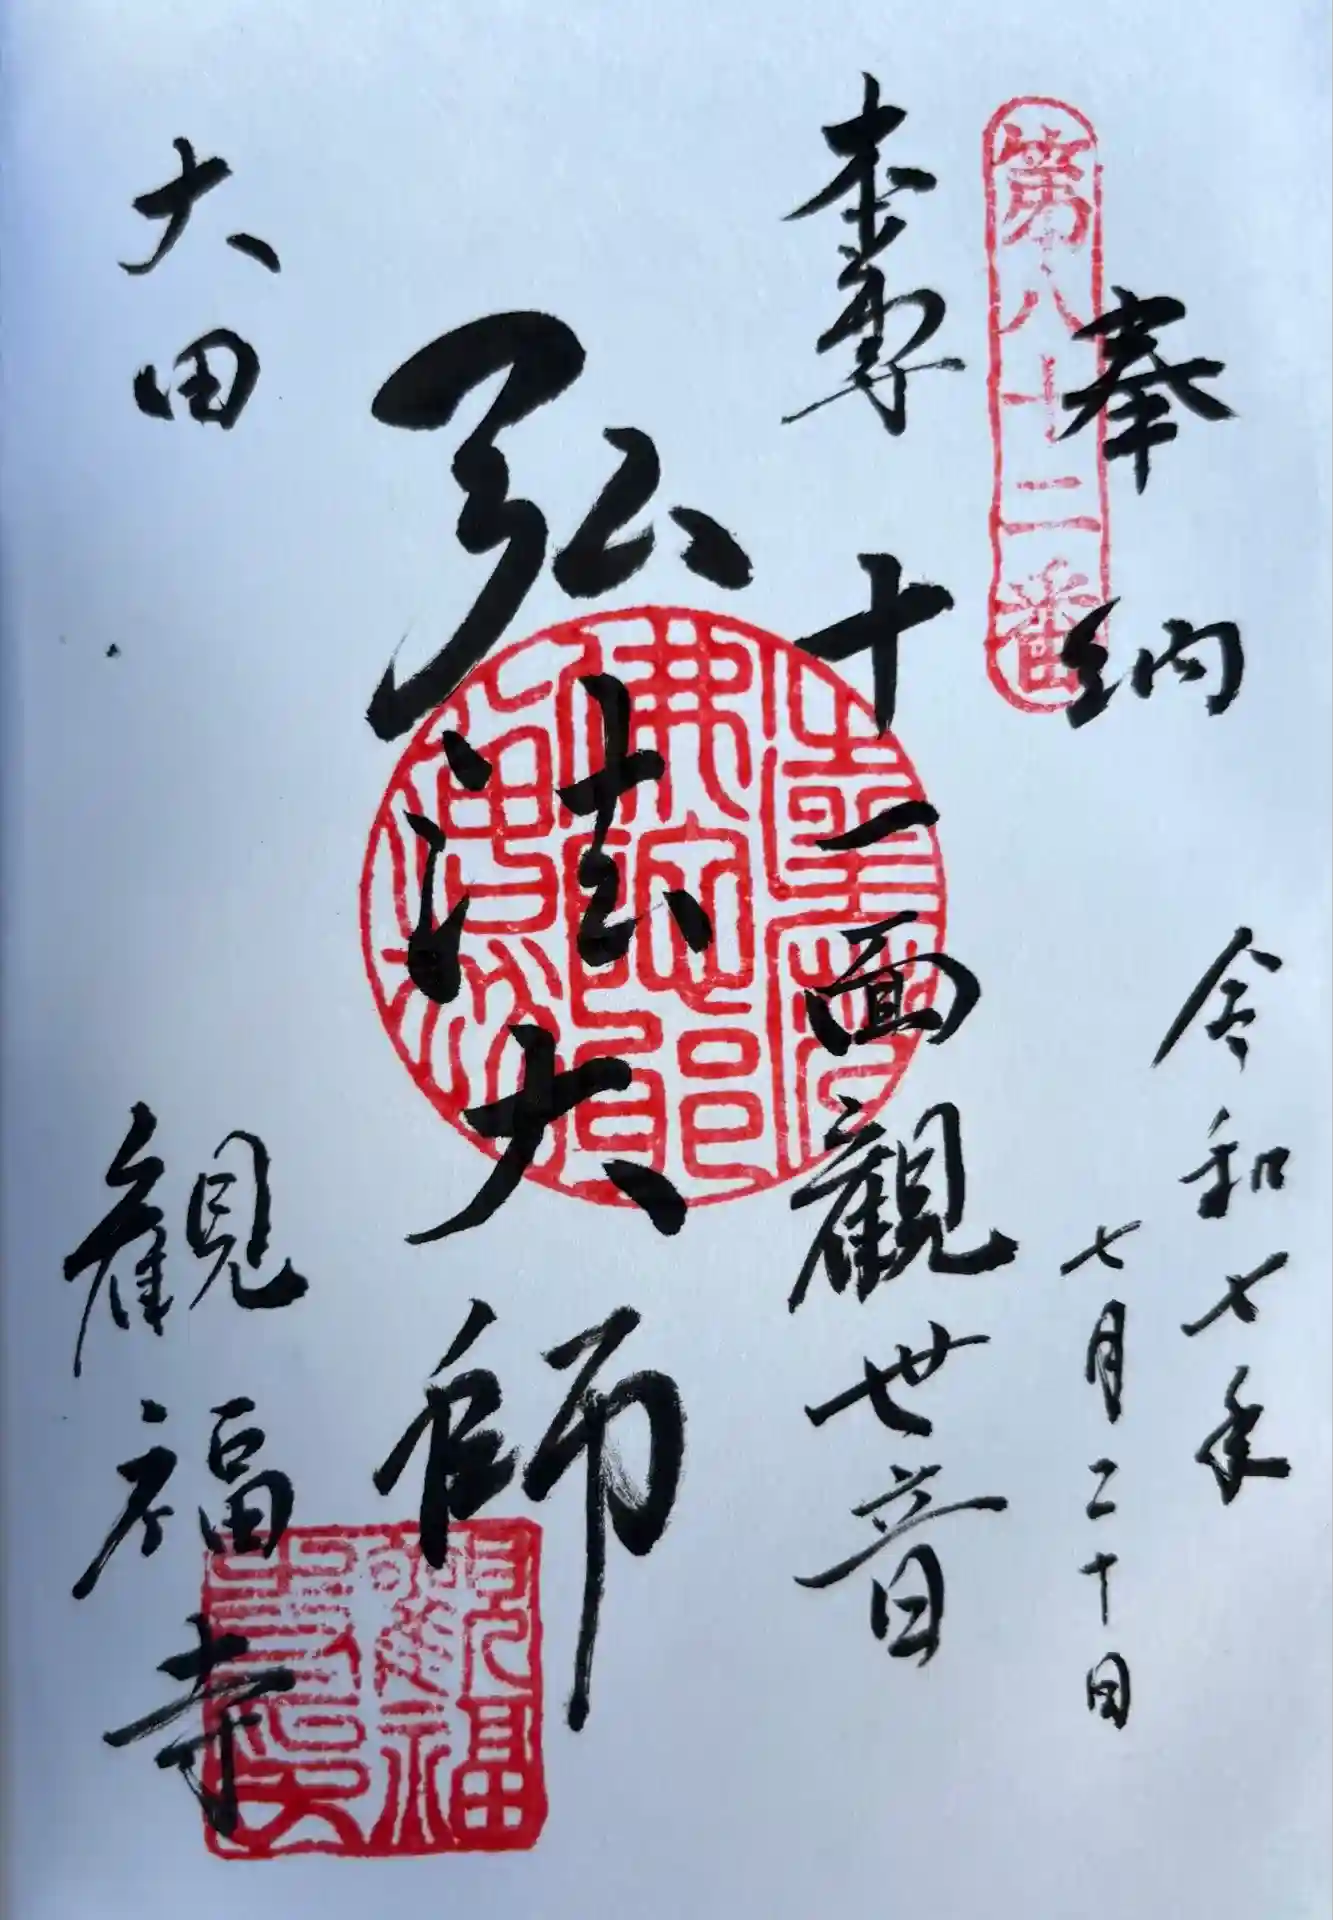 第八十二番
奉納
令和七年
七月二十日
本尊 十一面觀世音
弘法大師
大田
觀福寺
觀福寺印